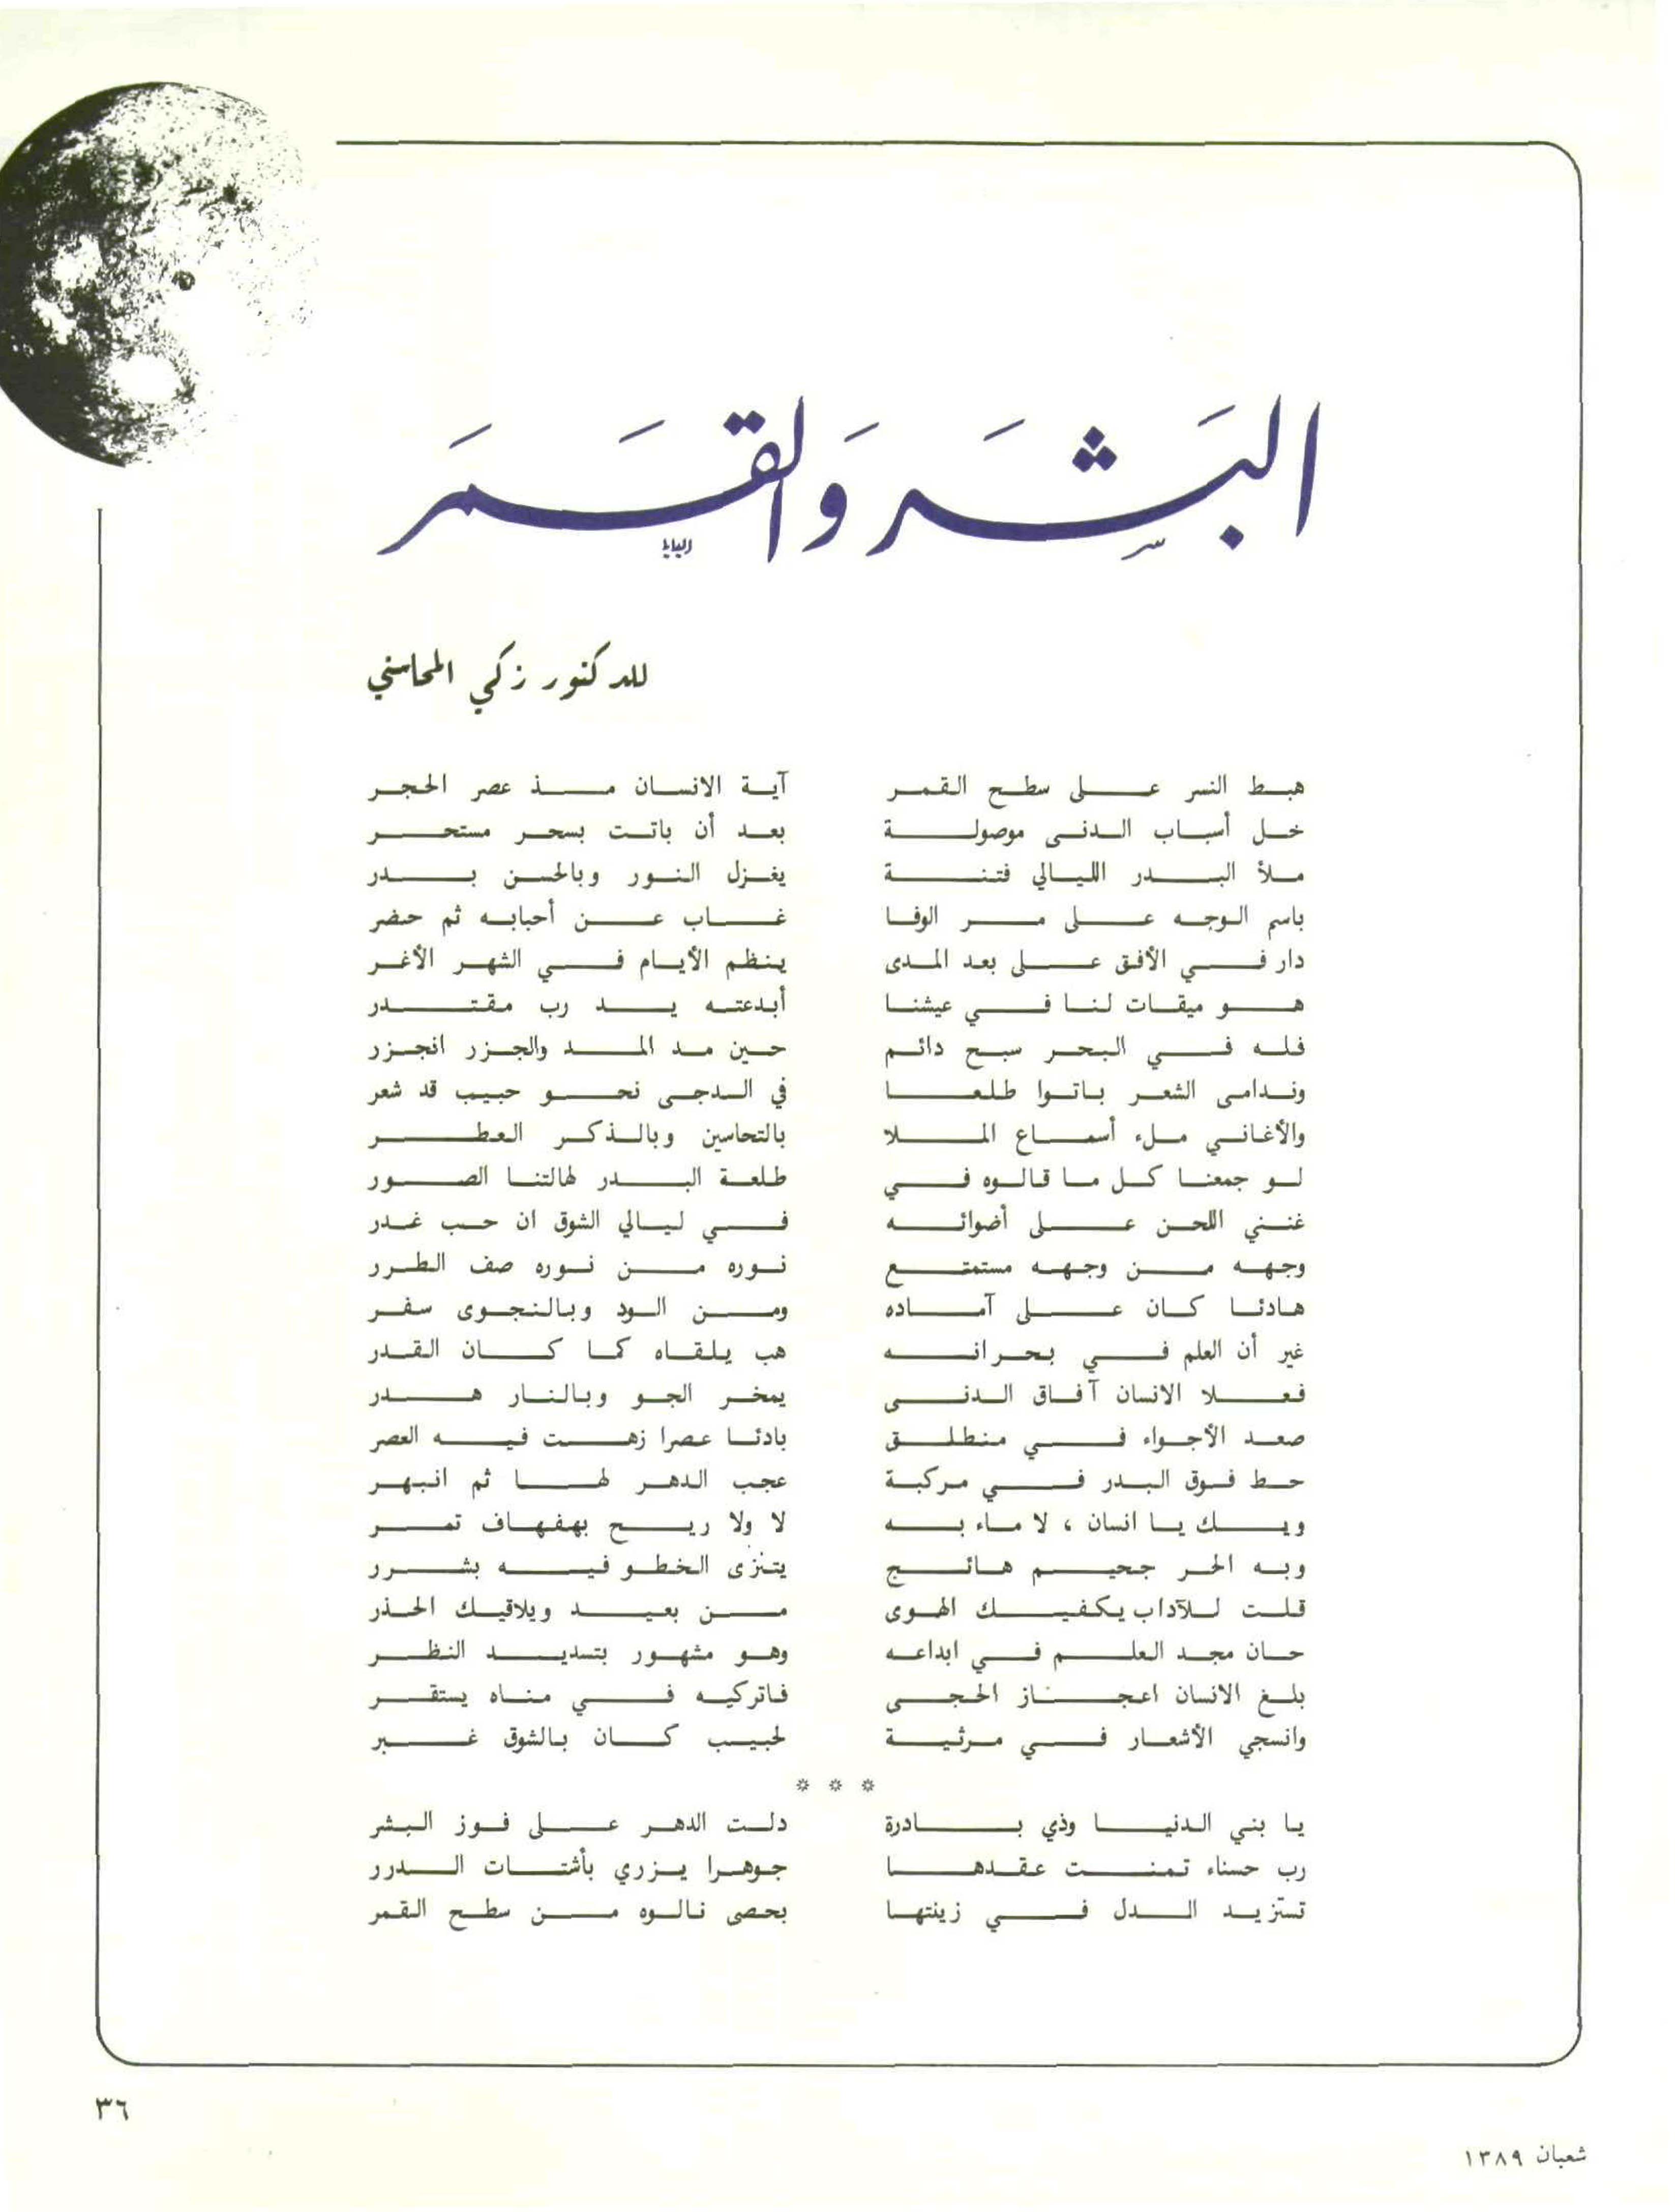 البَشَر وَالقَمَر
للدكتور زكي المحاسني
هبط النسر على سطح القمر آية الانسان مذ عصر الحجر
خل أسباب الدنى موصولة بعد أن باتت بسحر مستحر
ملأ البدر الليالي فتنة يغزل النور وبالحسن بدر
باسم الوجه على مر الوفا غاب عن أحبابه ثم حضر
دار في الأفق على بعد المدى ينظم الأيام في الشهر الأغر
هو ميقات لنا في عيشنا أبدعته يد رب مقتدر
فله في البحر سبح دائم حين مد المد والجزر انجزر
وندامى الشعر باتوا طلعا في الدجى نحو حبيب قد شعر
والأغاني ملء أسماع الملا بالتحاسين وبالذكر العطر
لو جمعنا كل ما قالوه في طلعة البدر لهالتنا الصور
غنني اللحن على أضوائه في ليالي الشوق ان حب غدر
وجهه من وجهه مستمتع نوره من نوره صف الطرر
هادئا كان على آماده ومن الود وبالنجوى سفر
غير أن العلم في بحرانه هب يلقاه كما كان القدر
فعلا الانسان آفاق الدنى يمخر الجو وبالنار هدر
صعد الأجواء في منطلق بادئا عصرا زهت فيه العصر
حط فوق البدر في مركبة عجب الدهر لها ثم انبهر
ويك يا انسان ، لا ماء به لا ولا ريح بهفهاف تمر
وبه الحر جحيم هائج يتنزى الخطو فيه بشرر
قلت للآداب يكفيك الهوى من بعيد ويلاقيك الحذر
حان مجد العلم في ابداعه وهو مشهور بتسديد النظر
بلغ الانسان اعجاز الحجى فاتركيه في مناه يستقر
وانسجي الأشعار في مرثية لحبيب كان بالشوق غبر
* * *
يا بني الدنيا وذي بادرة دلت الدهر على فوز البشر
رب حسناء تمنت عقدها جوهرا يزري بأشتات الدرر
تستزيد الدل في زينتها بحصى نالوه من سطح القمر
٣٦
شعبان ١٣٨٩